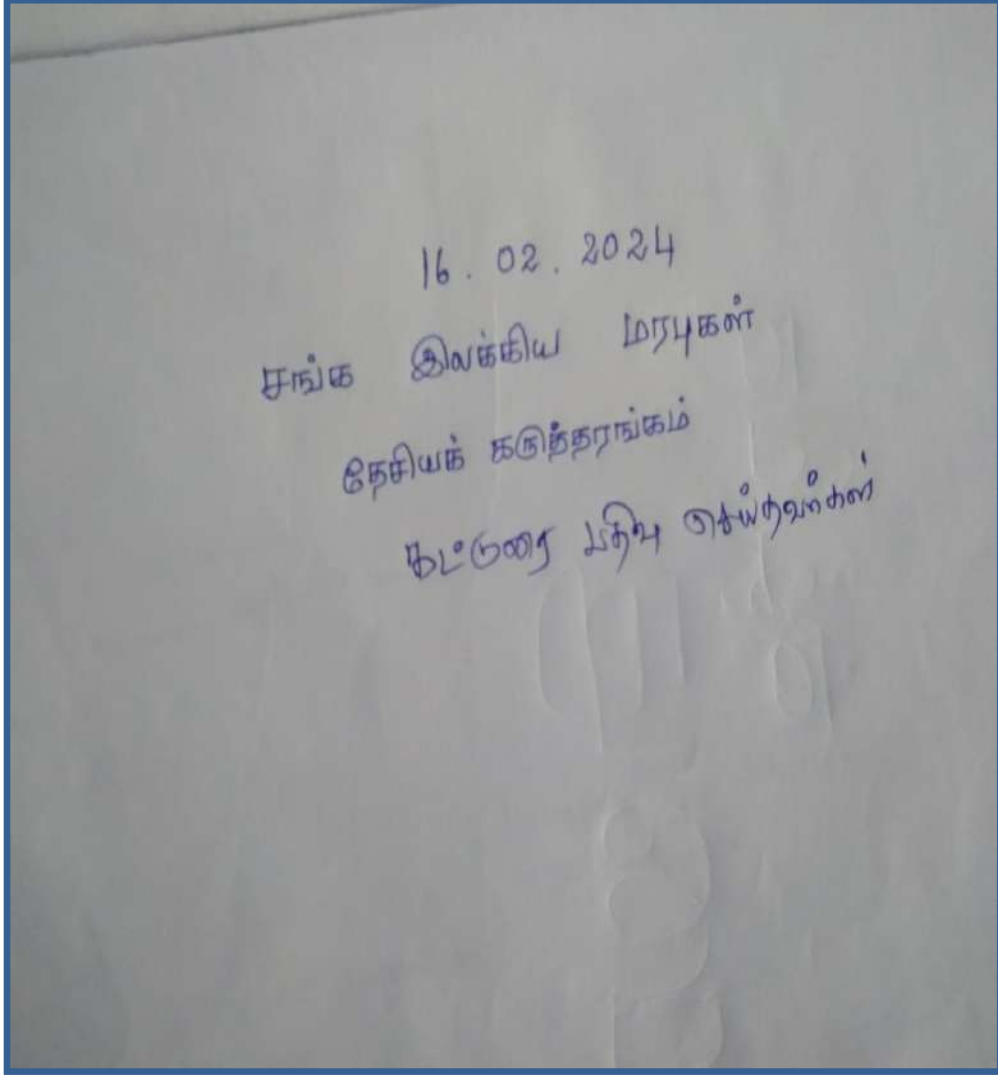 16 . 02 . 2024
சங்க இலக்கிய மரபுகள்
தேசியக் கருத்தரங்கம்
கட்டுரை பதிவு செய்தவர்கள்